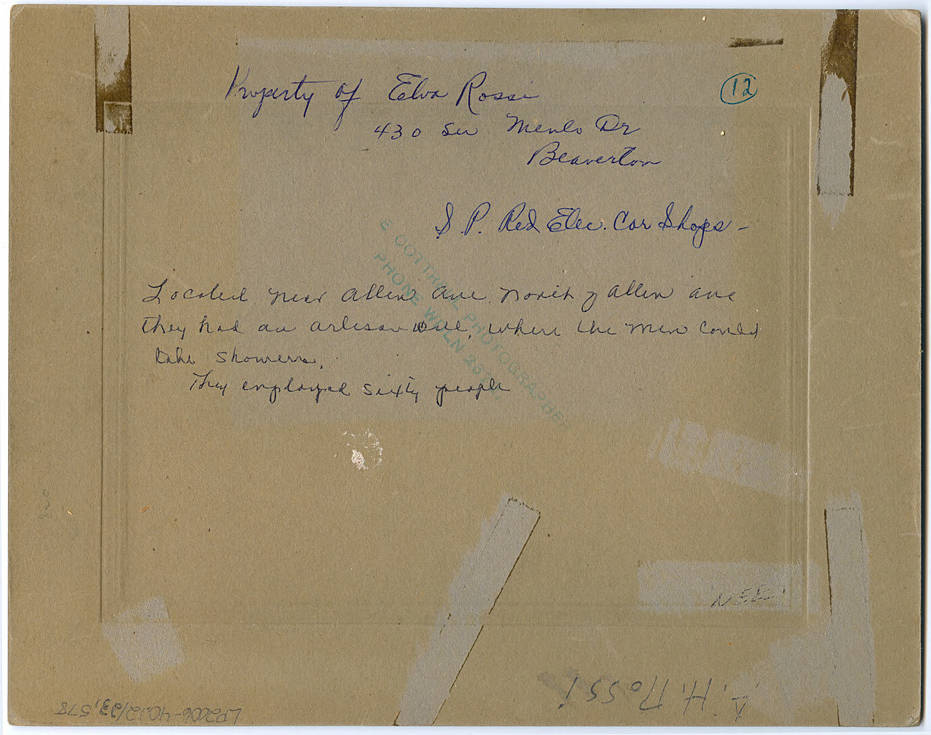 Property of Elva Rossi
12
430 SW Menlo Dr
Beaverton
S. P. Red Elec. Car Shops -
Located near Allen Ave North of Allen ave
they had an artesan well, where the men could
take showers.
They employed sixty people
PHOTOGRAPHER
PHONE
A. H. Rossi
LP2006-40.12/23,578